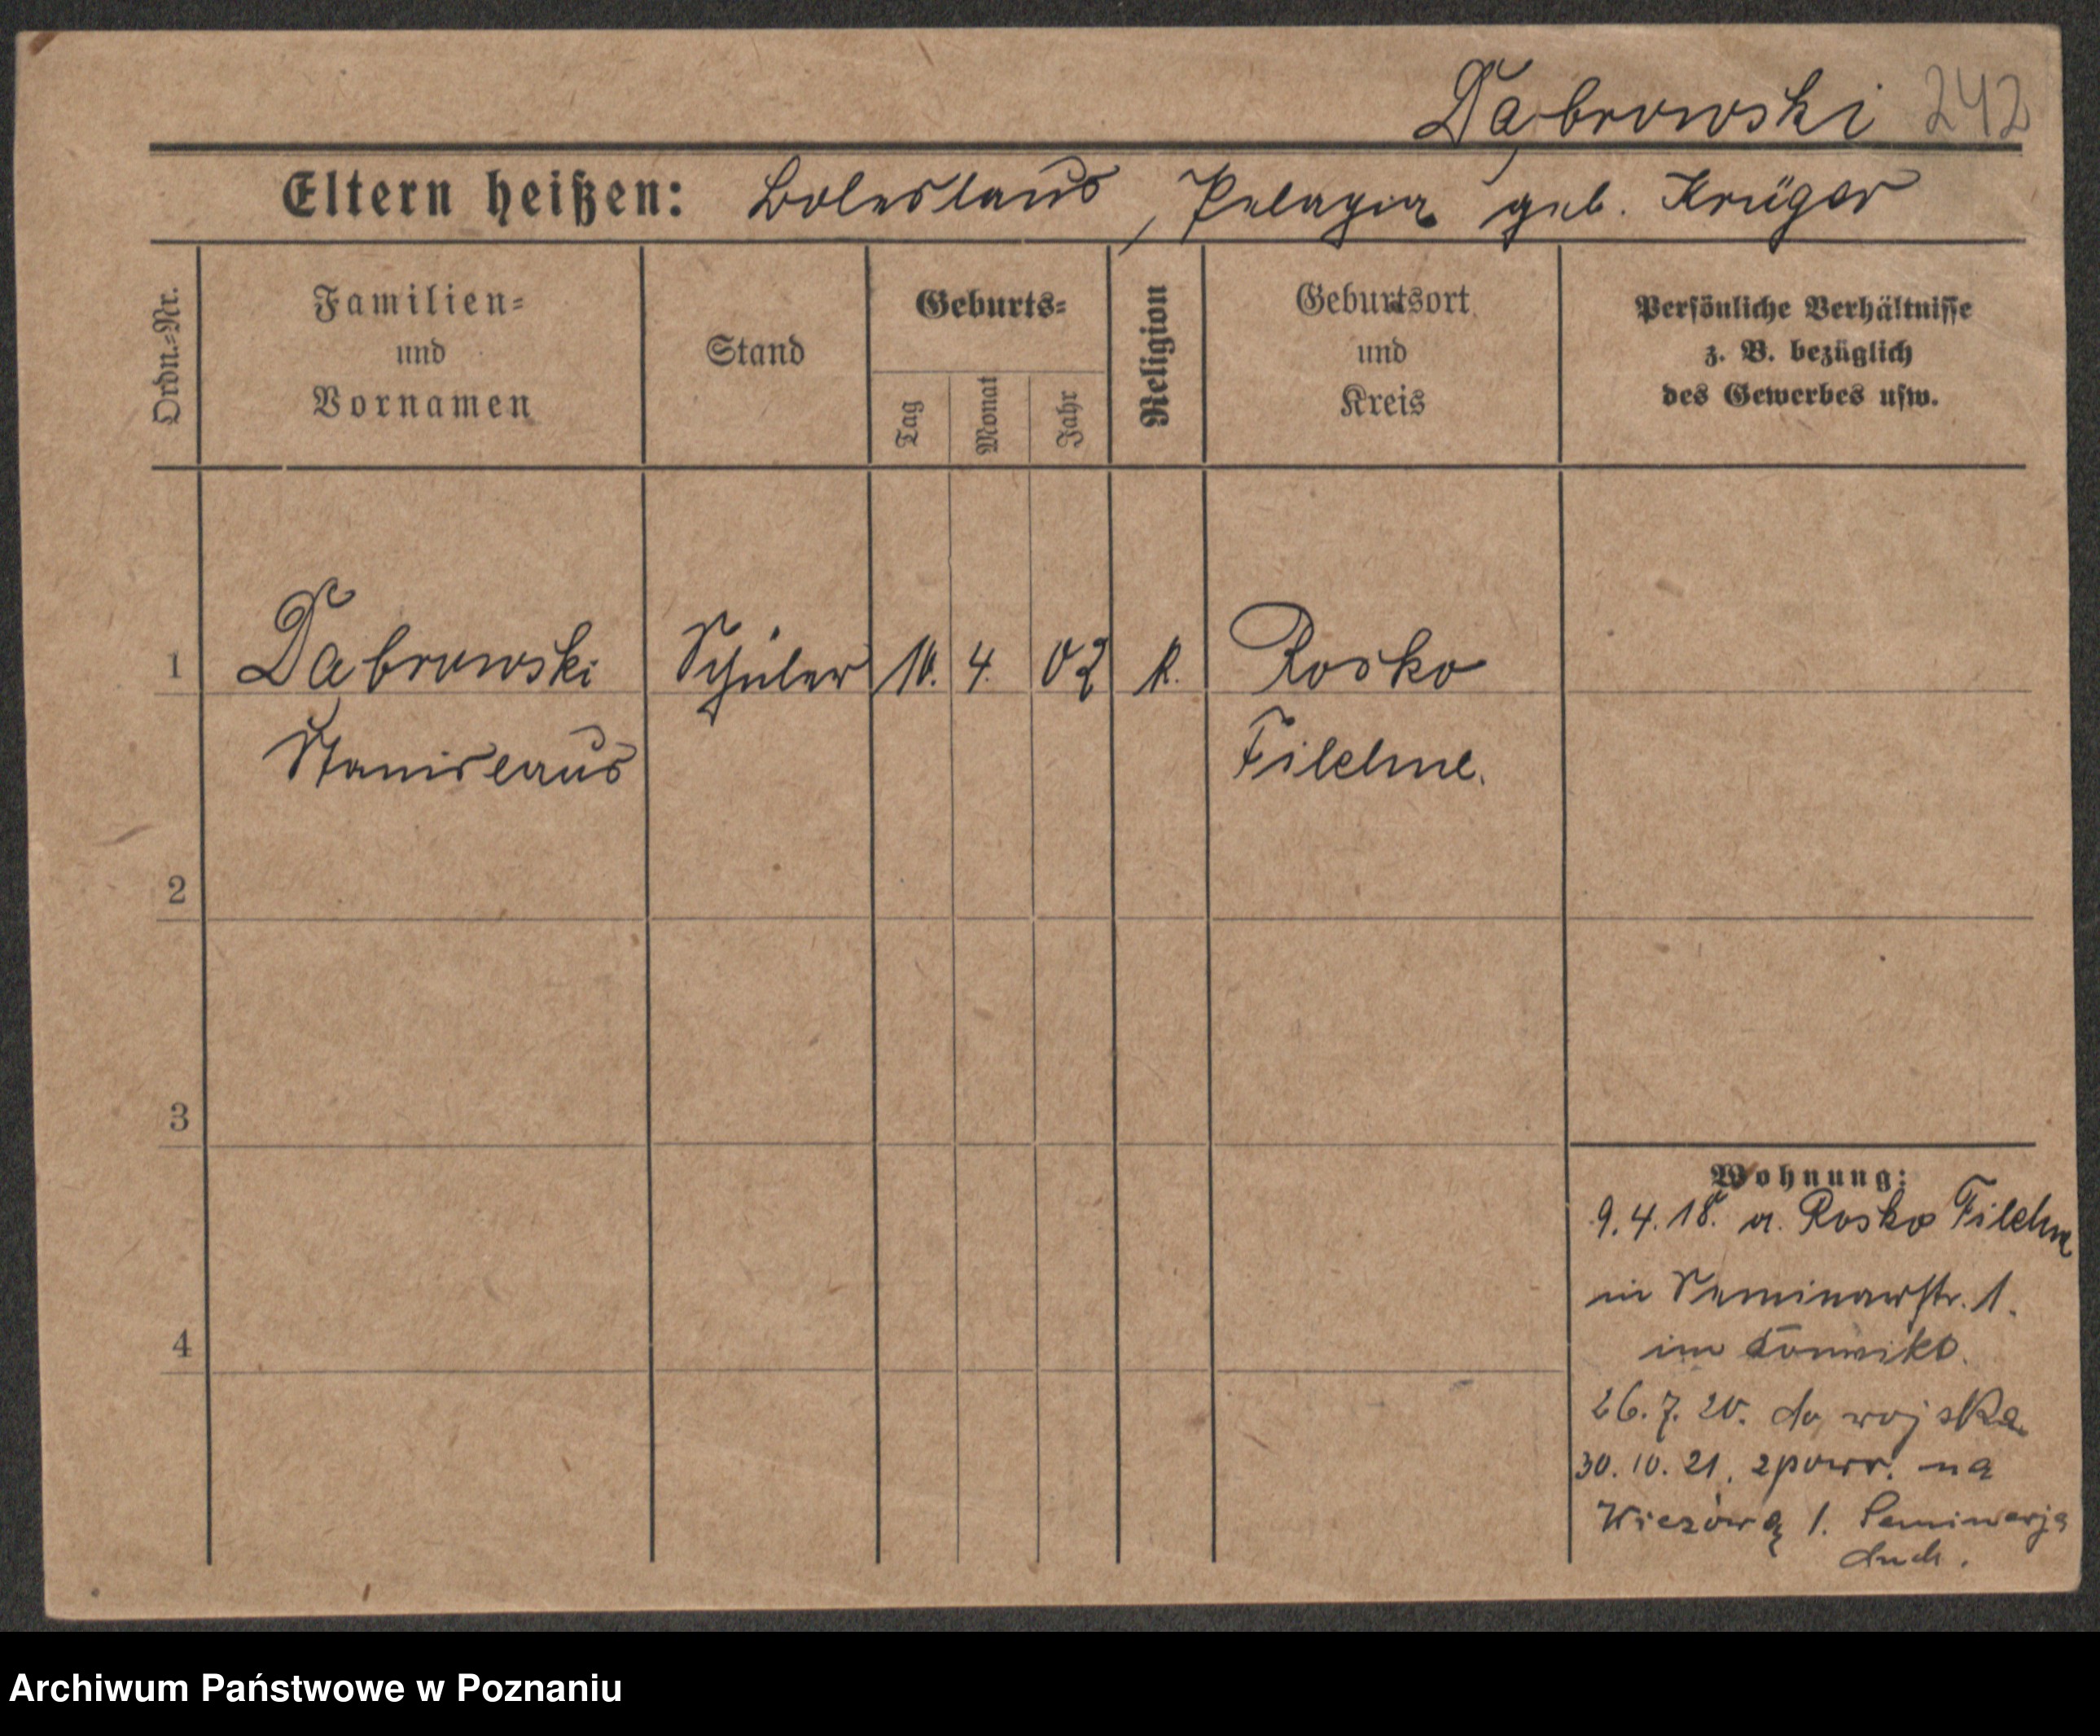 Dąbrowski 242
Eltern heißen: Boleslaus, Pelagia geb. Krüger
Ordn.-Nr.
Familien-
und
Vornamen
Stand
Geburts-
Tag
Monat
Jahr
Religion
Geburtsort
und
Kreis
Persönliche Verhältnisse
z. B. bezüglich
des Gewerbes usw.
1 Dabrowski Schüler 10. 4. 02 k. Rosko
Stanislaus Filehne.
2
3
4
Wohnung:
9.4.18. a. Rosko Filehne
in Seminarstr. 1.
im Konvikt.
26.7.20. do wojska
30.10.21. zpowr. na
Wieżową 1. Seminarja
duch.
Archiwum Państwowe w Poznaniu